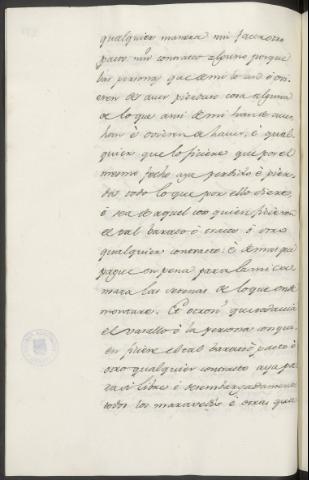 qualquier manera nin facer otro
pacto, nin contracto alguno porque
las personas que de mi lo an ó ovi-
eren de aver pierdan cosa alguna
de lo que ansi de mi han de aver,
han é ovieren de haver, é qual
quier que lo ficiere que por el
mesmo fecho aya perdido é pier-
da todo lo que por ello diere,
ó sea de aquel con quien ficieren
el tal barato ó trato ó otro
qualquier contracto: é demas que
pague en pena para la mi ca-
mara las setenas de lo que en
montare. Et otrosi, que todavia
el vasallo ó la persona con qui-
en ficiere el tal barato pacto ó
otro qualquier contracto aya pa-
ra si libre é desembargadamente
todos los maravedis é otras qua